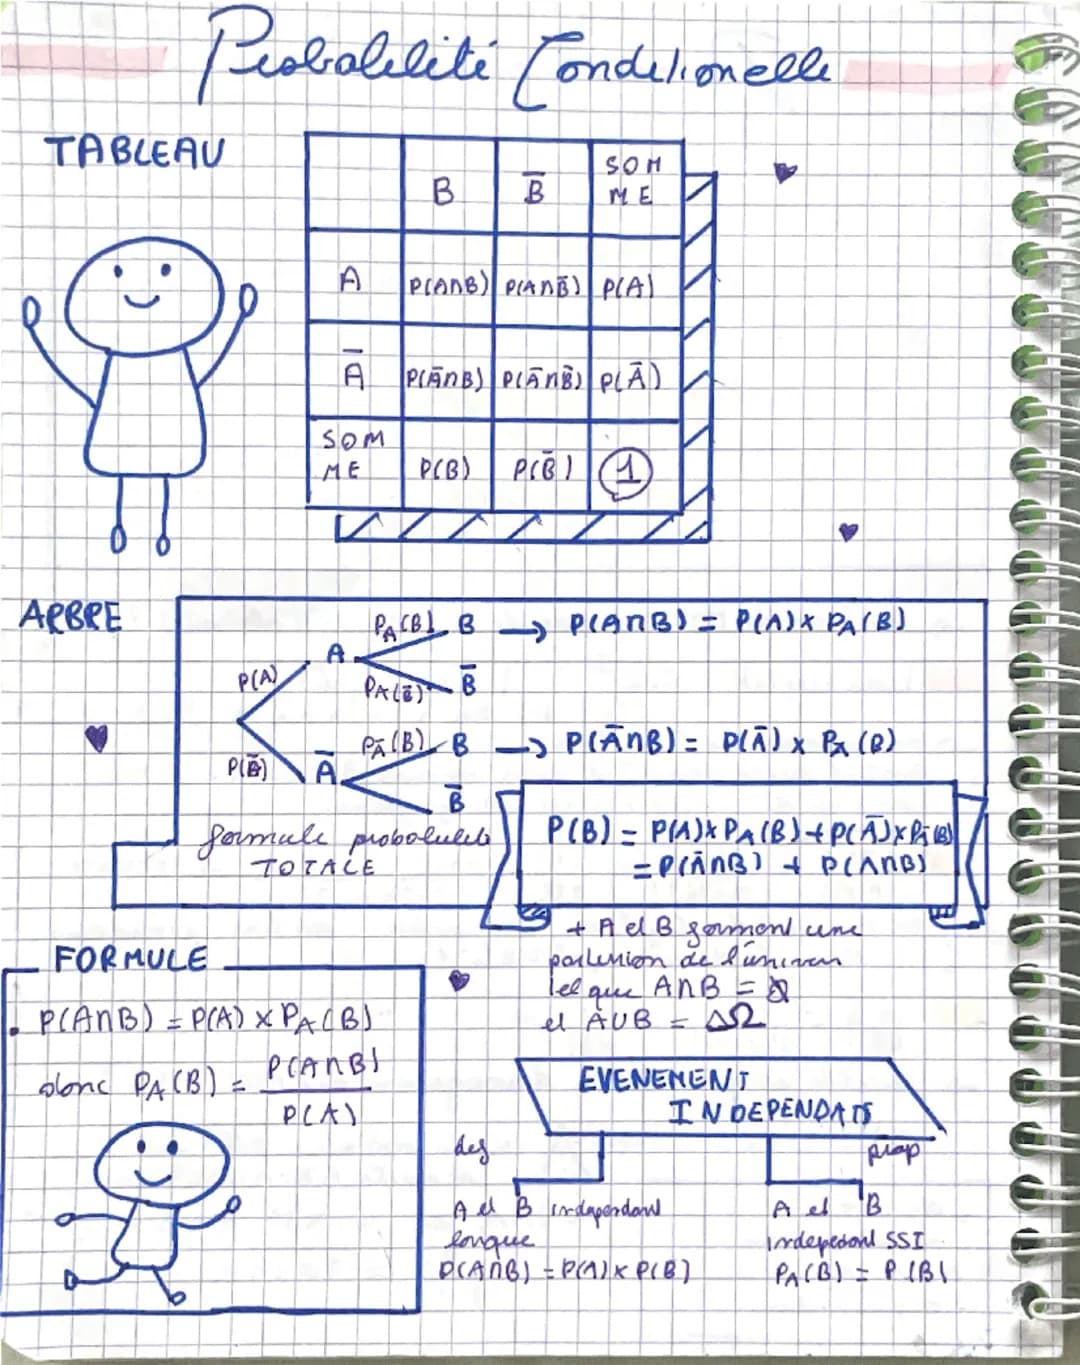 Probabilité Conditionelle
TABLEAU
B B̅ SOM
ME
A P(A∩B) P(A∩B̅) P(A)
A̅ P(A̅∩B) P(A̅∩B̅) P(A̅)
SOM
ME P(B) P(B̅) 1
ARBRE
P_A(B) B → P(A∩B) = P(A) x P_A(B)
A
P(A) P_A(B̅) B̅
P_A̅(B) B → P(A̅∩B) = P(A̅) x P_A̅(B)
P(A̅) A̅
B̅
formule probabilité
TOTALE
P(B) = P(A) x P_A(B) + P(A̅) x P_A̅(B)
= P(A̅∩B) + P(A∩B)
+ A et B forment une
partition de l'univers
tel que A∩B = ∅
et A∪B = Ω
FORMULE
• P(A∩B) = P(A) x P_A(B)
donc P_A(B) = P(A∩B)
P(A)
EVENEMENT
INDEPENDATS
def
prop
A et B independant
lorsque
P(A∩B) = P(A) x P(B)
A et B
independant SSI
P_A(B) = P(B)